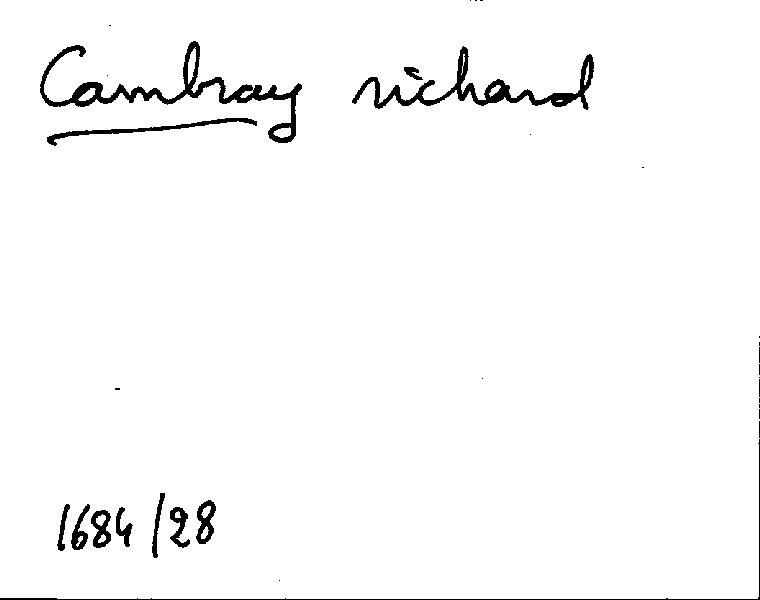 Cambray richard
1684/28